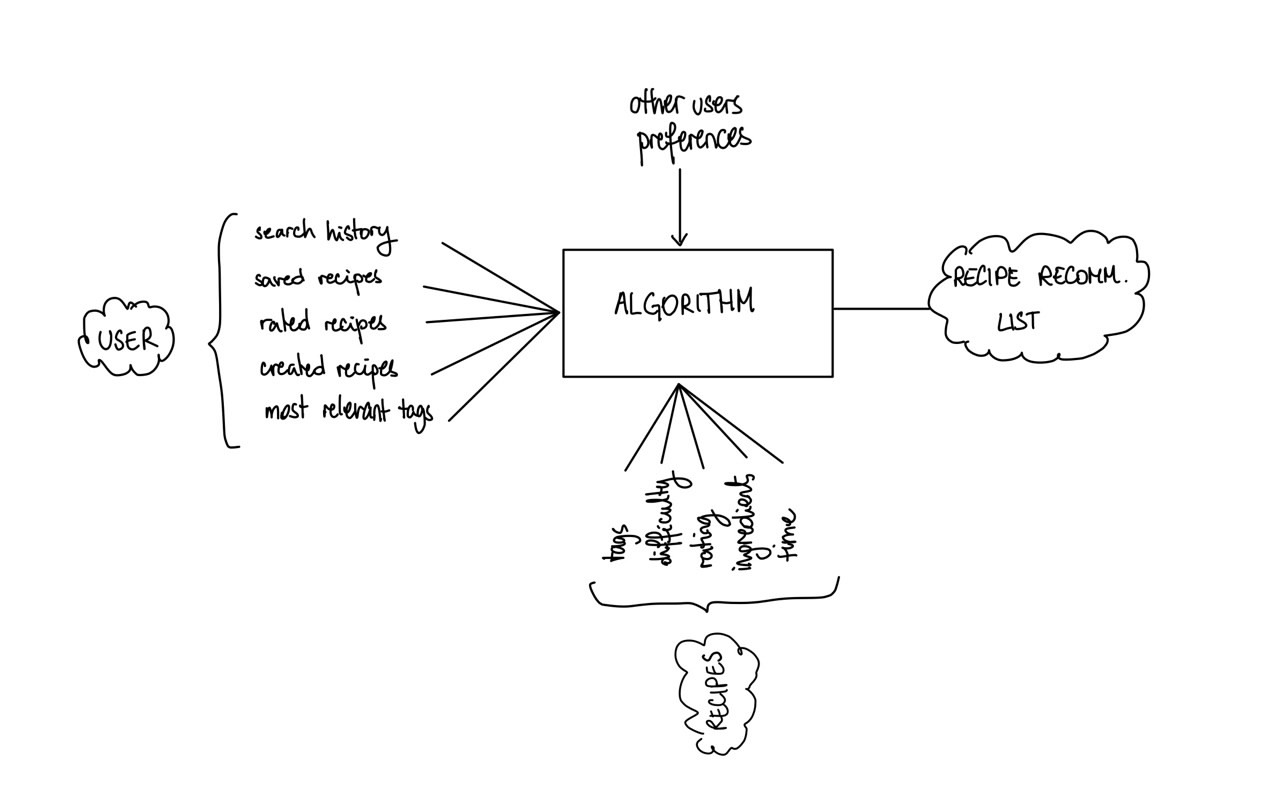 other users
preferences
search history
saved recipes
rated recipes
created recipes
most relevant tags
USER
ALGORITHM
RECIPE RECOMM.
LIST
tags
difficulty
rating
ingredients
time
RECIPES